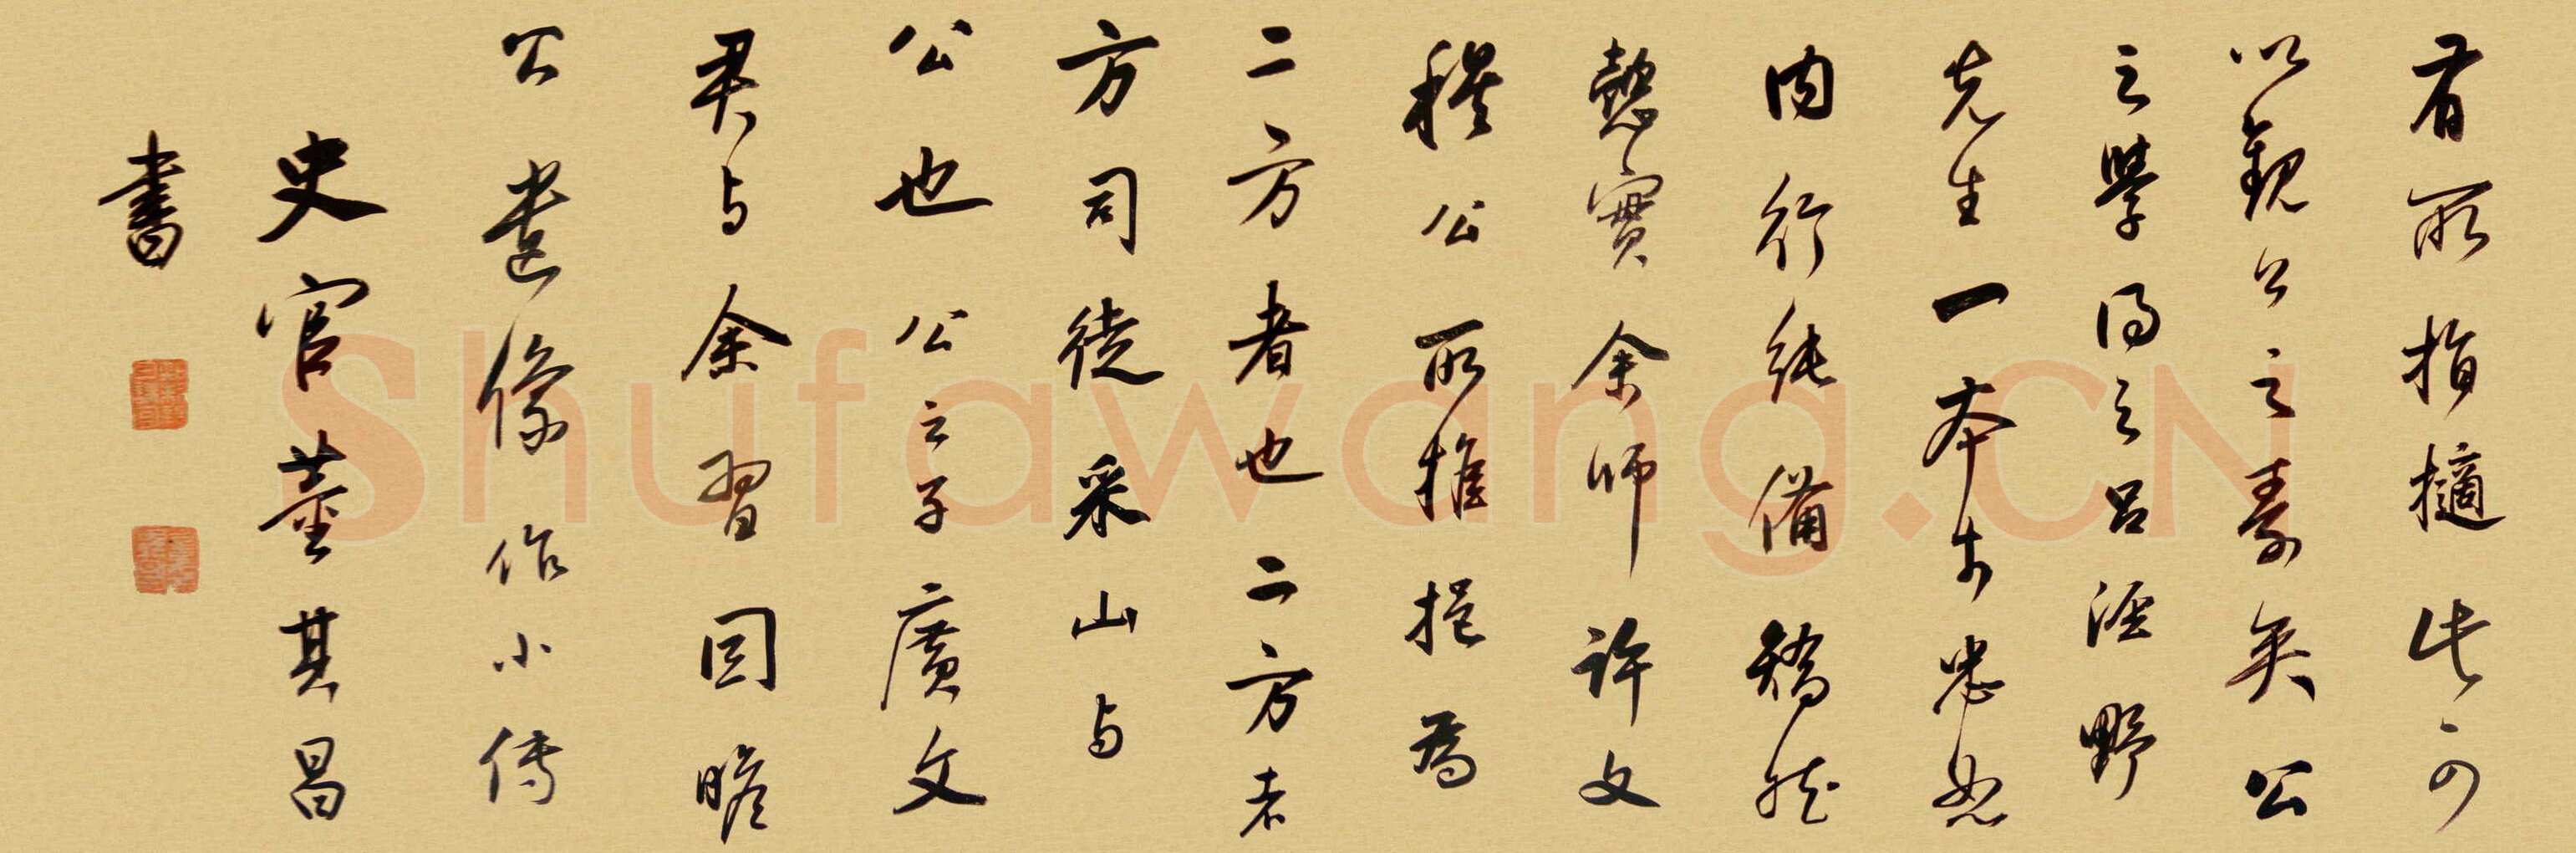 有所指擿此可
以觀公之素矣公
之學得之呂涇野
先生一本於忠恕
内行純備矯然
慤實余師許文
穆公所推挹為
二方者也二方者
方司徒采山与
公也公之子廣文
君与余習因瞻
公遺像作小傳
史官董其昌
書
Shufawang.CN